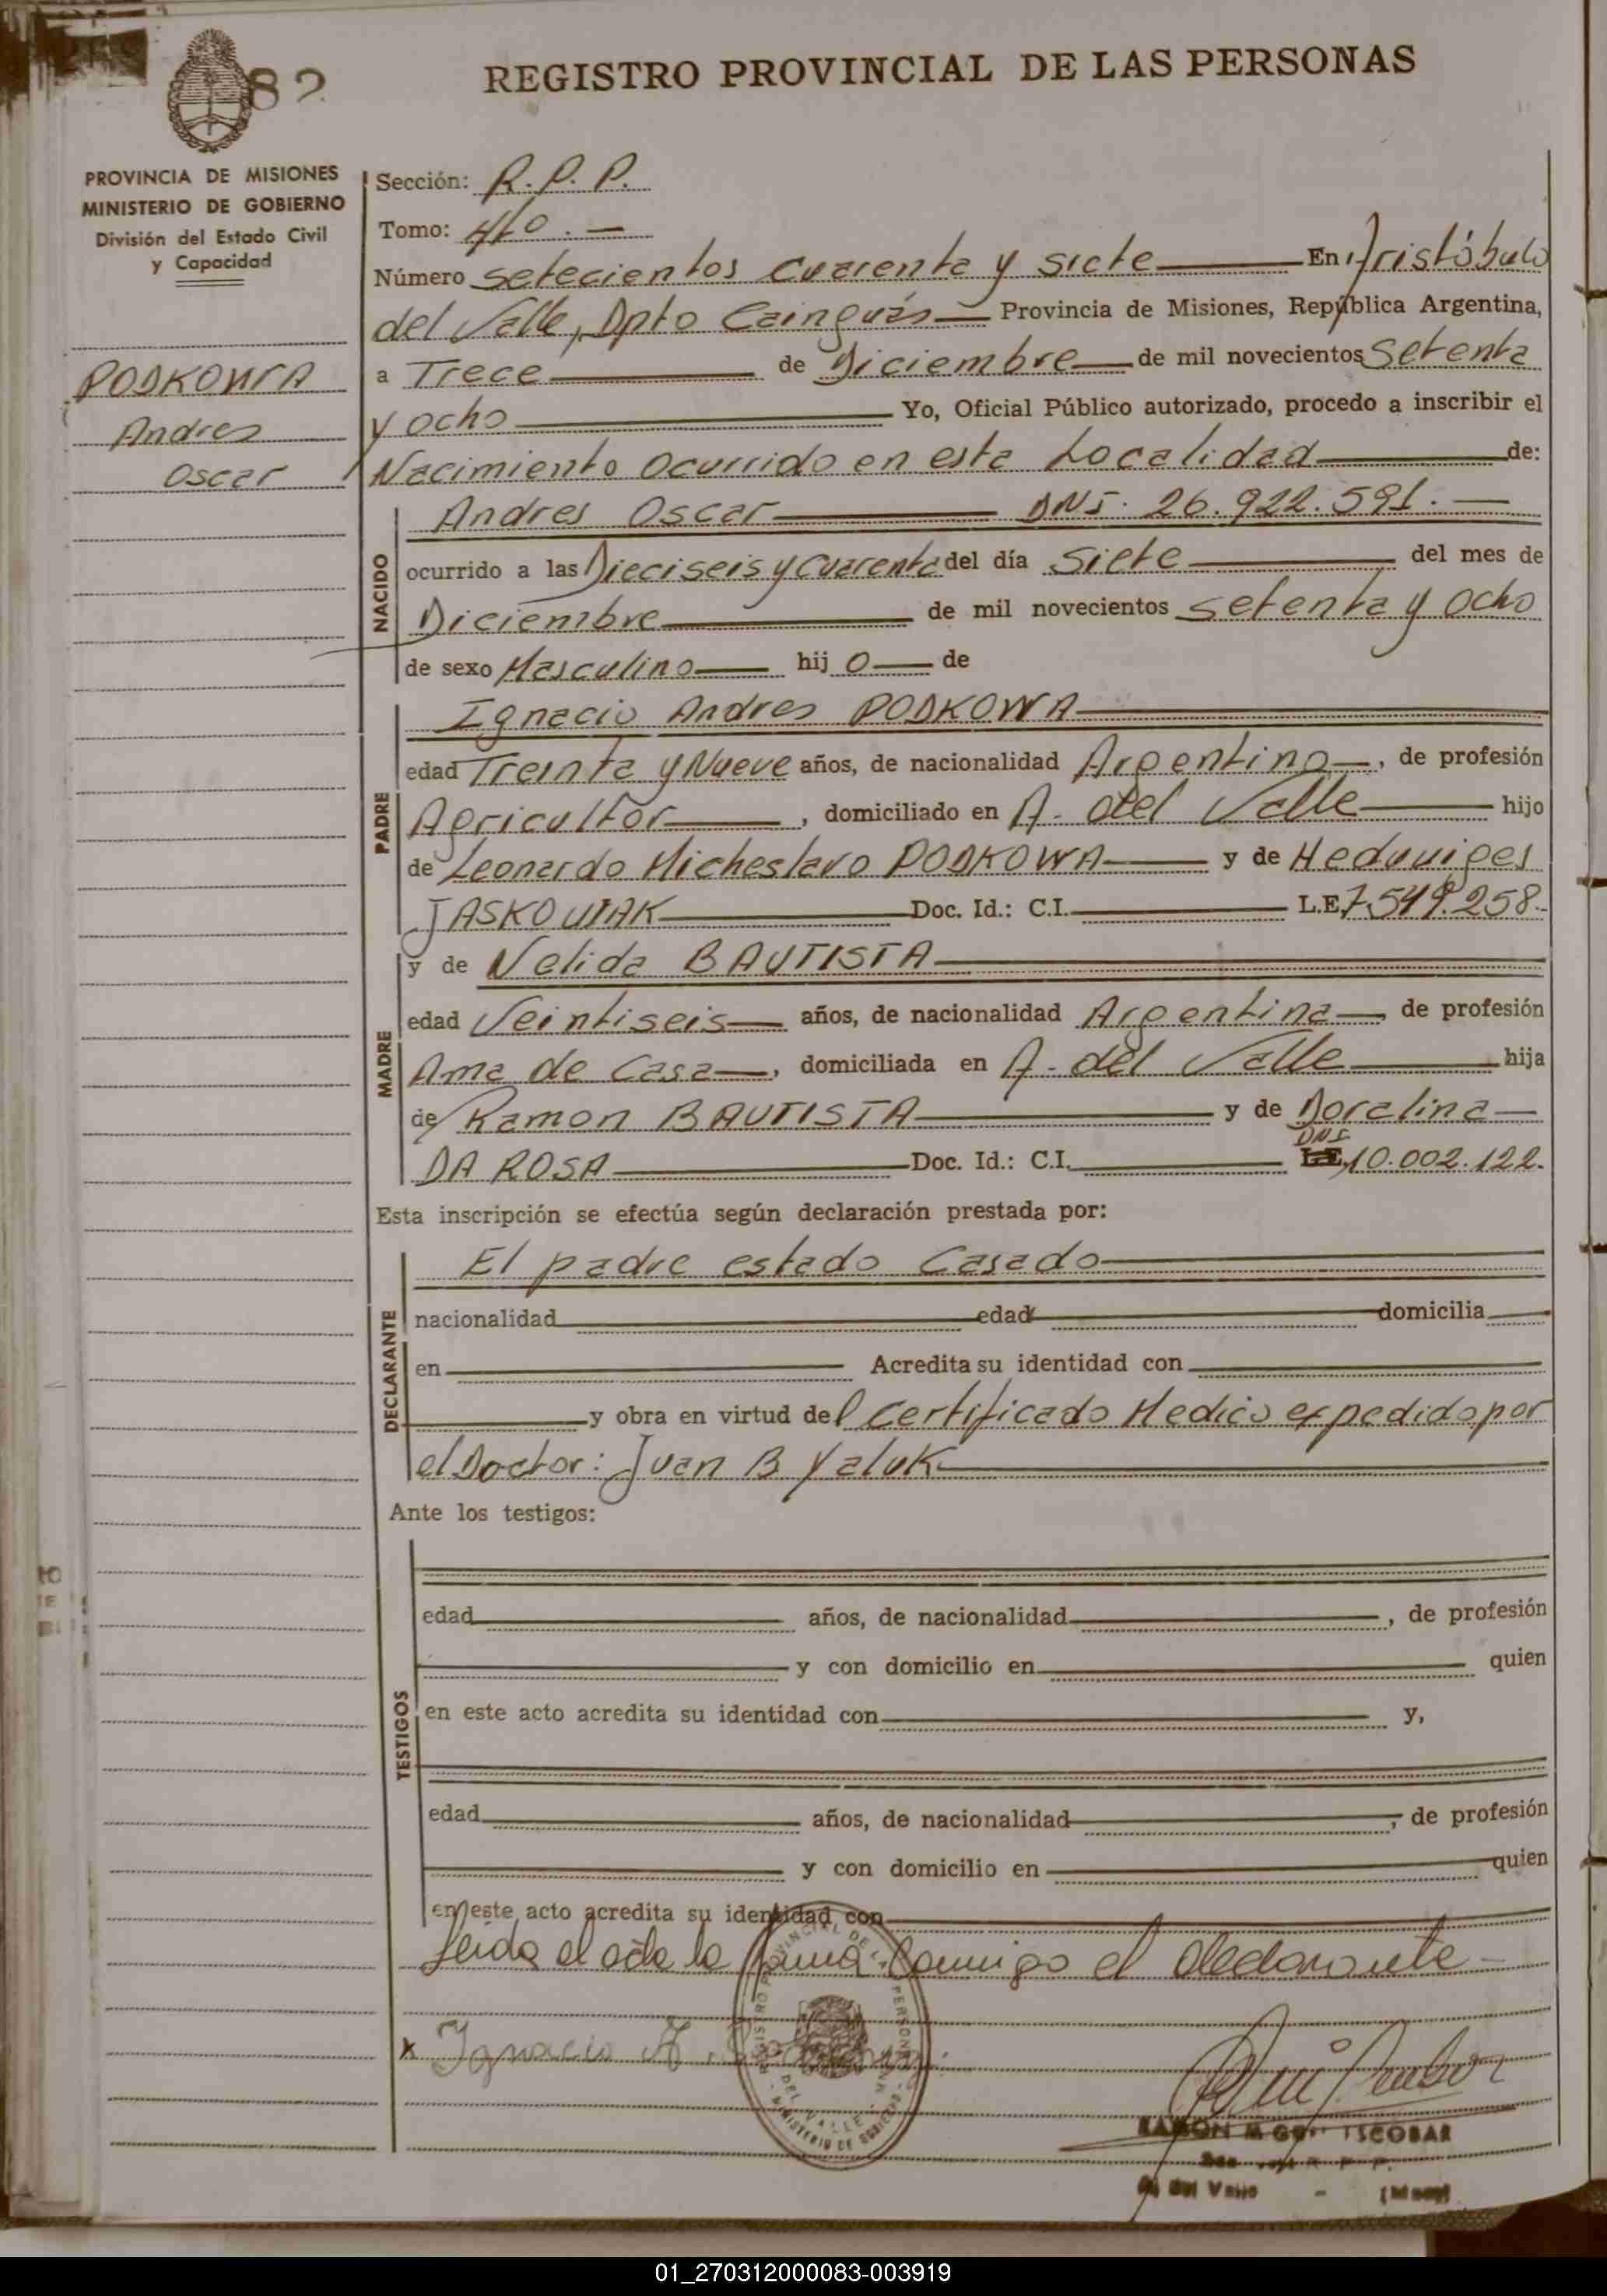 82
REGISTRO PROVINCIAL DE LAS PERSONAS
PROVINCIA DE MISIONES
MINISTERIO DE GOBIERNO
División del Estado Civil
y Capacidad
PODKOWA
Andres
Oscar
Sección: R.P.P.
Tomo: 4to.-
Número setecientos cuarenta y siete En Aristóbulo
del Valle, Dpto Cainguás Provincia de Misiones, República Argentina,
a Trece de Diciembre de mil novecientos setenta
y ocho Yo, Oficial Público autorizado, procedo a inscribir el
Nacimiento Ocurrido en esta Localidad de:
NACIDO
Andres Oscar DNI. 26.922.591.
ocurrido a las Dieciseis y Cuarenta del día Siete del mes de
Diciembre de mil novecientos setenta y ocho
de sexo Masculino hijo de
PADRE
Ignacio Andres PODKOWA
edad Treinta y Nueve años, de nacionalidad Argentino, de profesión
Agricultor, domiciliado en A. del Valle hijo
de Leonardo Micheslavo PODKOWA y de Heduviges
JASKOVIAK Doc. Id.: C.I. L.E. 7.549.258.-
MADRE
y de Nelida BAUTISTA
edad Veintiseis años, de nacionalidad Argentina de profesión
Ama de Casa, domiciliada en A. del Valle hija
de Ramon BAUTISTA y de Doralina
DA ROSA Doc. Id.: C.I. DNI L.E. 10.002.122.
Esta inscripción se efectúa según declaración prestada por:
DECLARANTE
El padre estado Casado
nacionalidad edad domicilia
en Acredita su identidad con
y obra en virtud del Certificado Medico expedido por
el Doctor: Juan B Yaluk
Ante los testigos:
TESTIGOS
edad años, de nacionalidad, de profesión
y con domicilio en quien
en este acto acredita su identidad con y,
edad años, de nacionalidad, de profesión
y con domicilio en quien
en este acto acredita su identidad con
Leida el acta la firma Conmigo el declarante -
x Ignacio A.
REGISTRO PROVINCIAL DE LAS PERSONAS
DEL VALLE
MINISTERIO DE GOBIERNO
RAMON ESCOBAR
A del Valle - (Mnes)
01_270312000083-003919